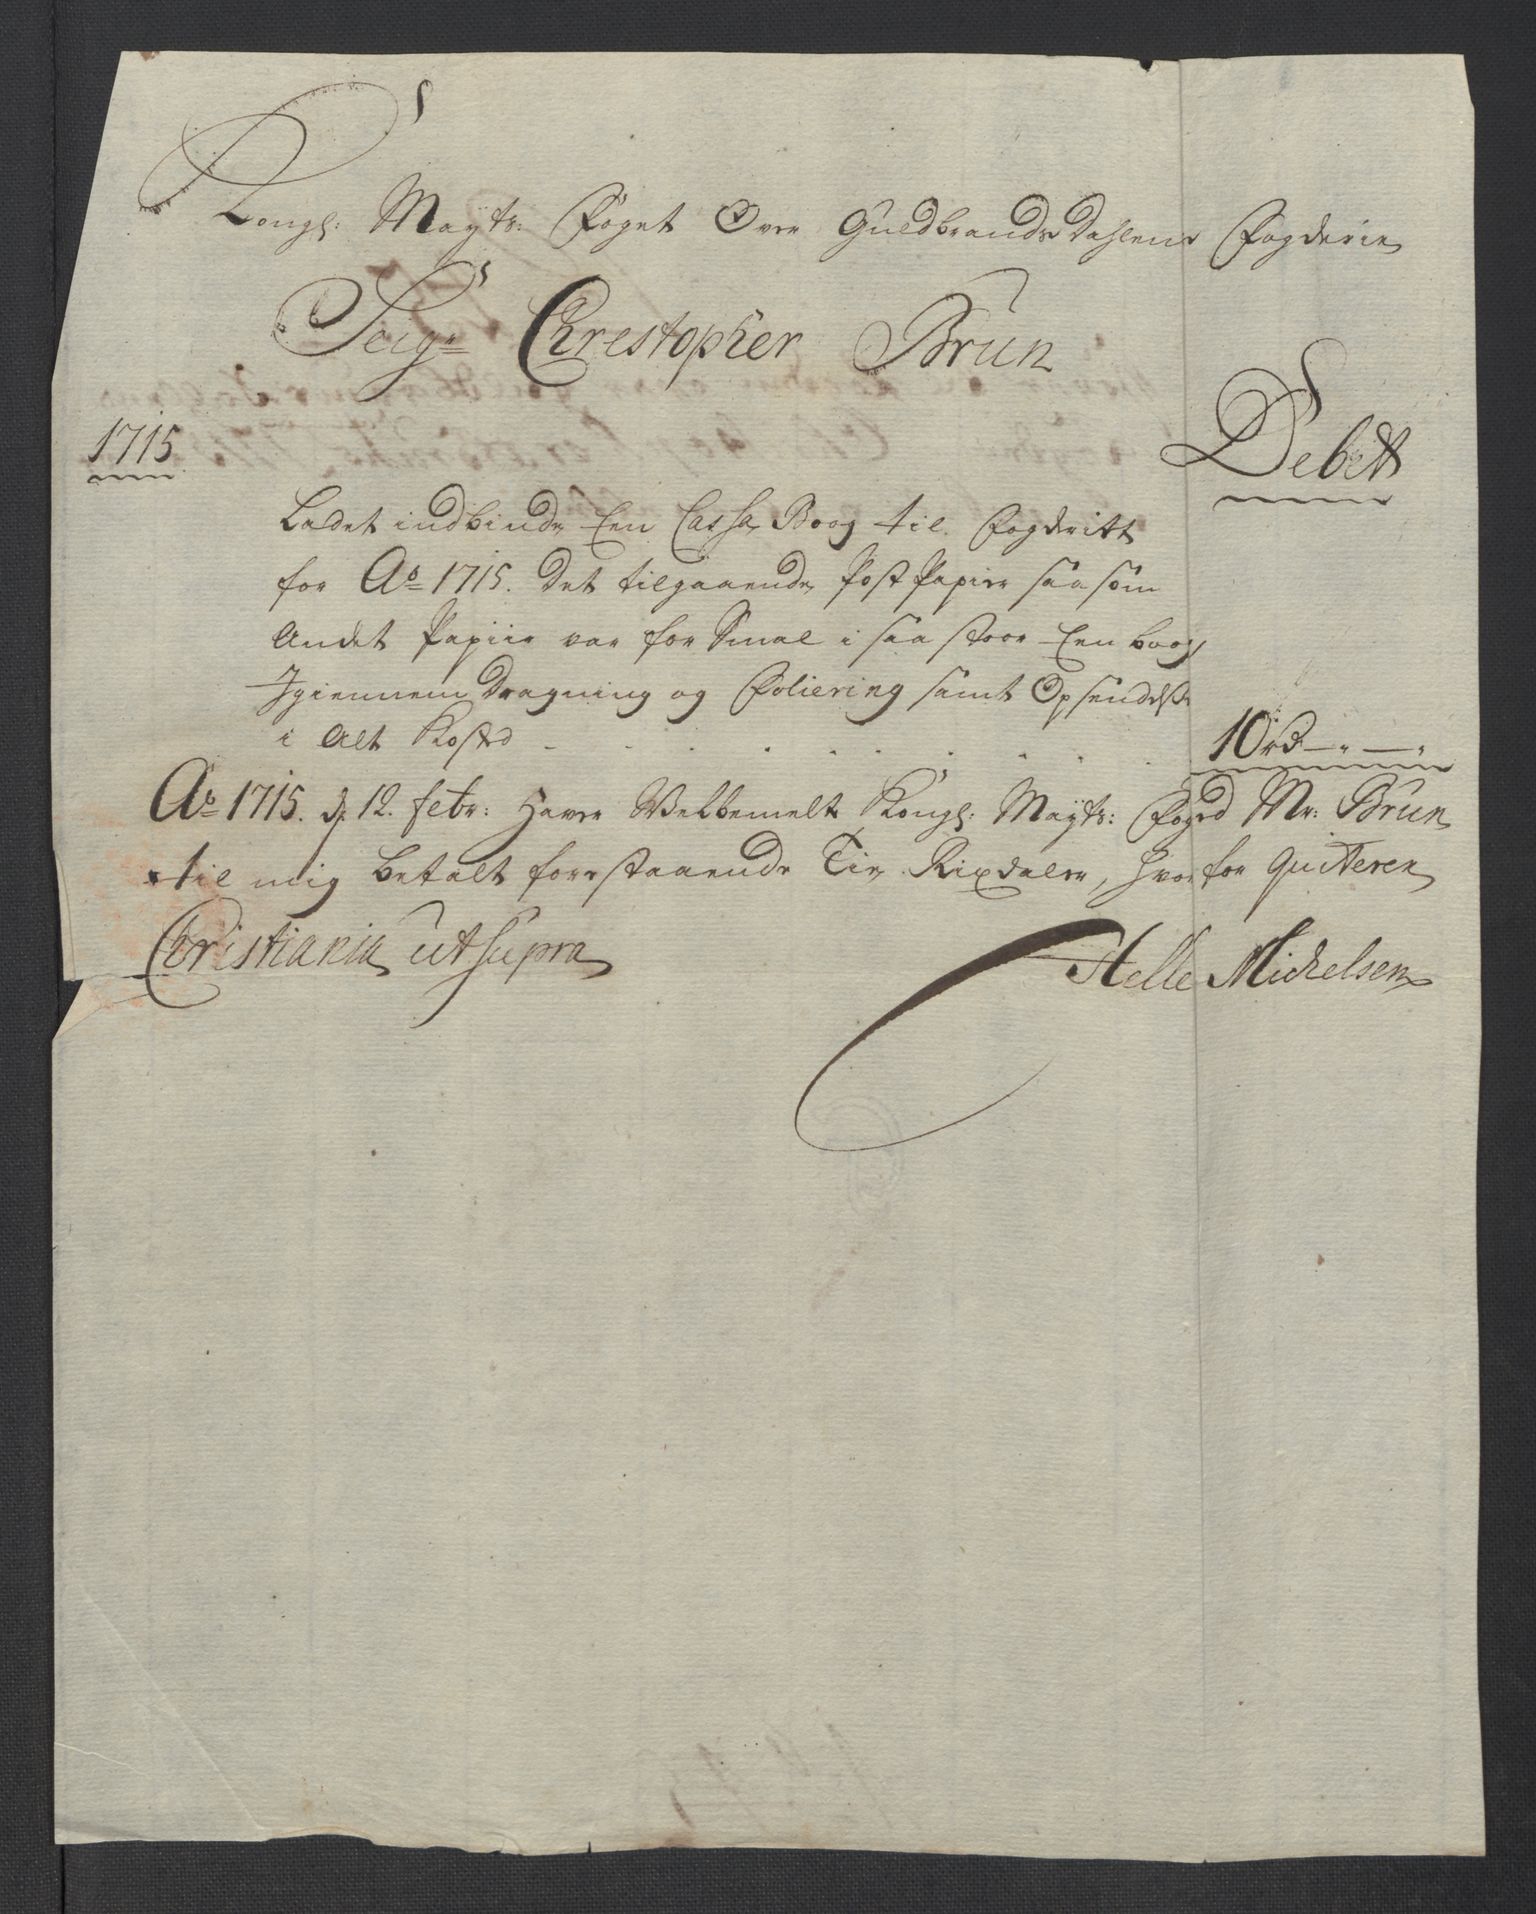 Kongl: Mayts: Foget Over Guldbrands Dahlens Fogderie
Seigr Chrestopher Brun
1715
Debett
Ladet indbinde Een Cassa Boog til Fogderitt
for Ao 1715. det tilgaaende Post Papier saasom
Andet Papiir var for Smal i saa stoor Een boog
Igiennem Dragning og Foliering samt Opsendelse
i Alt Kosted - - - - - - - - - 10 rd — " — "
Ao 1715. d. 12. febr: Haver Welbemelte Kongl: Mayts: Foged Mr: Brun
til mig betalt forestaaende Tie Rixdaler, hvorfor quiteren
Christiania ut supra
Helle Michelsen